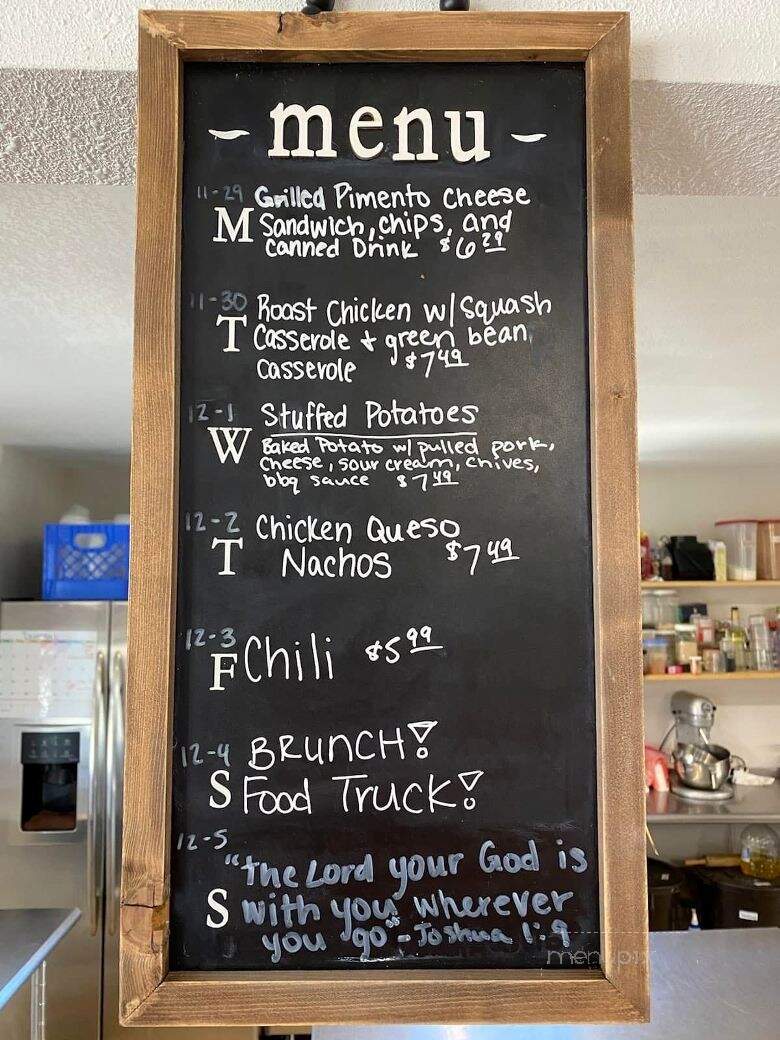 - menu -
11-29 Grilled Pimento Cheese
M Sandwich, chips, and
canned Drink $6 29
11-30 Roast Chicken w/ Squash
T Casserole + green bean
casserole $7 49
12-1 Stuffed Potatoes
W Baked Potato w/ pulled pork,
cheese, sour cream, chives,
bbq sauce $7 49
12-2 Chicken Queso
T Nachos $7 49
12-3
F Chili $5 99
12-4 BRUNCH!
S Food Truck!
12-5
"the Lord your God is
S with you wherever
you go" - Joshua 1:9
menupix